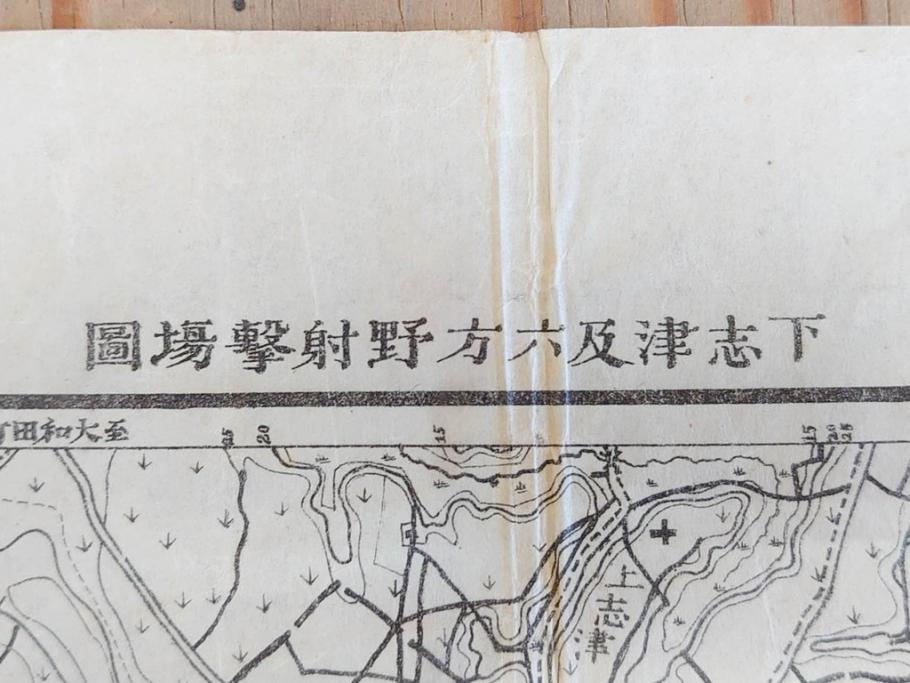 下志津及六方野射擊塲圖
至大和田
20
15
15
20
25
上志津